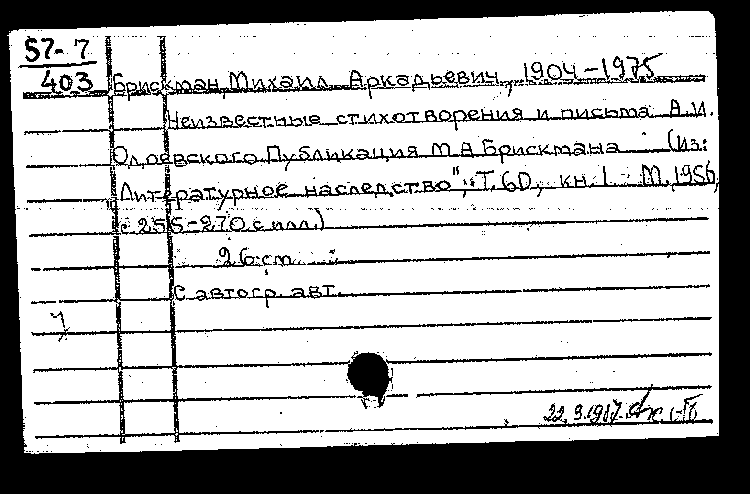 57-7
403
Брискман, Михаил Аркадьевич, 1904-1975
Неизвестные стихотворения и письма А.И.
Одоевского. Публикация М.А. Брискмана (Из:
"Литературное наследство", Т. 60, кн. 1 М., 1956,
с 255-270 с илл.)
26 cm
С автогр. авт.